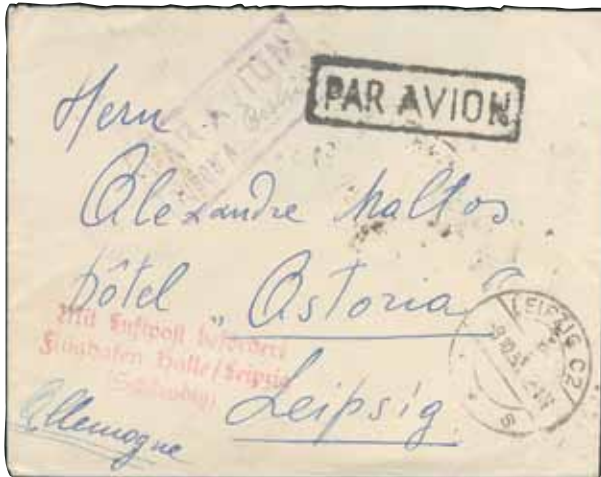 PAR AVION
PAR AVION
Herrn
Alexandre Mallos
hôtel „Astoria“
Mit Luftpost befördert
Flughafen Halle/Leipzig
(Schkeuditz)
Leipsig
Allemagne
LEIPZIG C2